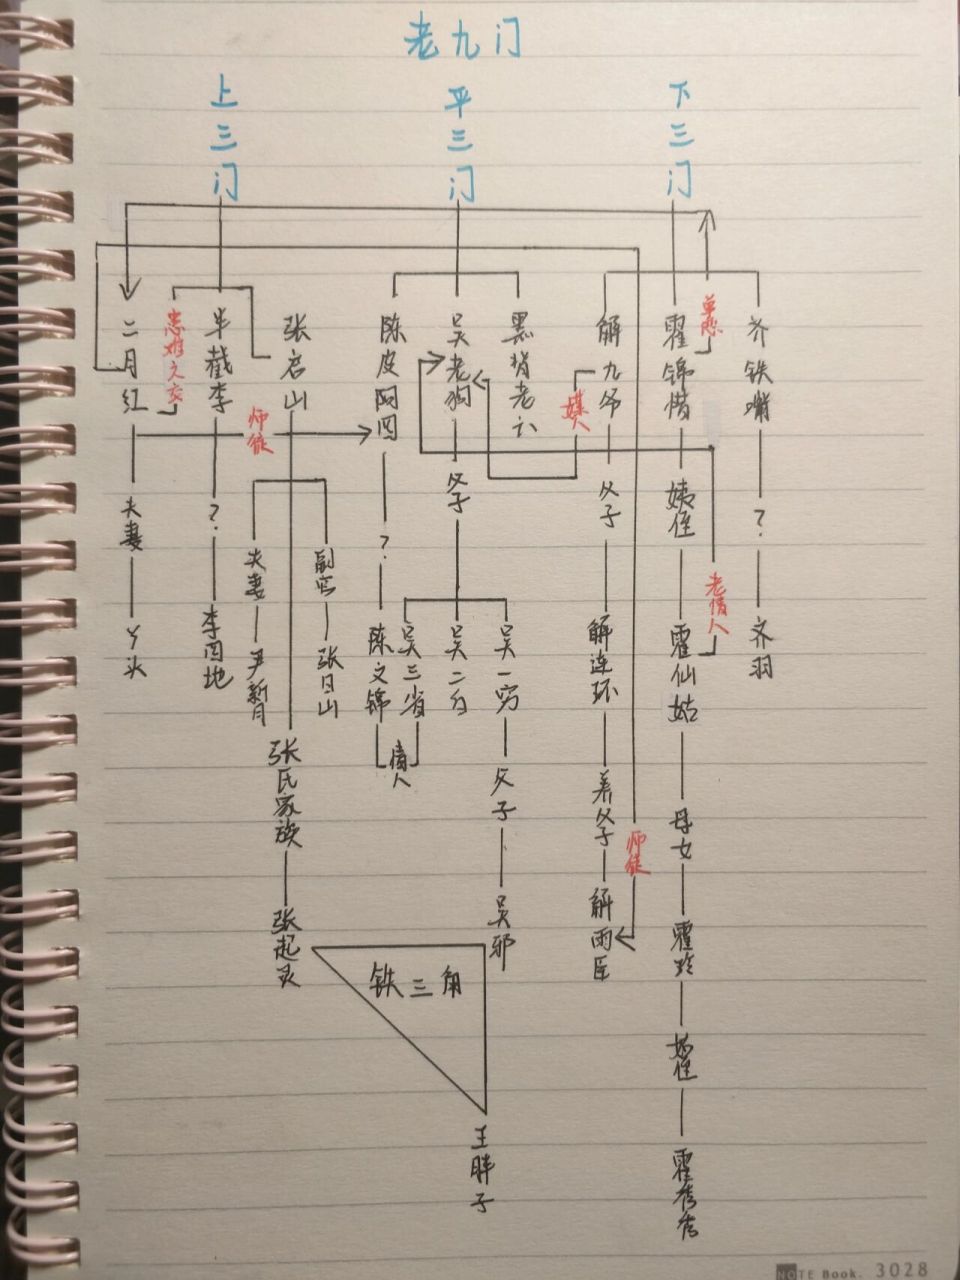 老九门
上三门
平三门
下三门
二月红
患难之交
半截李
张启山
陈皮阿四
吴老狗
黑背老六
解九爷
霍锦惜
单恋
齐铁嘴
媒人
师徒
夫妻
?
夫妻
副官
?
父子
父子
姨侄
?
丫头
李四地
尹新月
张日山
陈文锦
吴三省
吴二白
吴一穷
解连环
霍仙姑
老情人
齐羽
情人
张氏家族
父子
养父子
师徒
母女
张起灵
吴邪
解雨臣
霍玲
铁三角
姑侄
王胖子
霍秀秀
NOTE Book. 3028